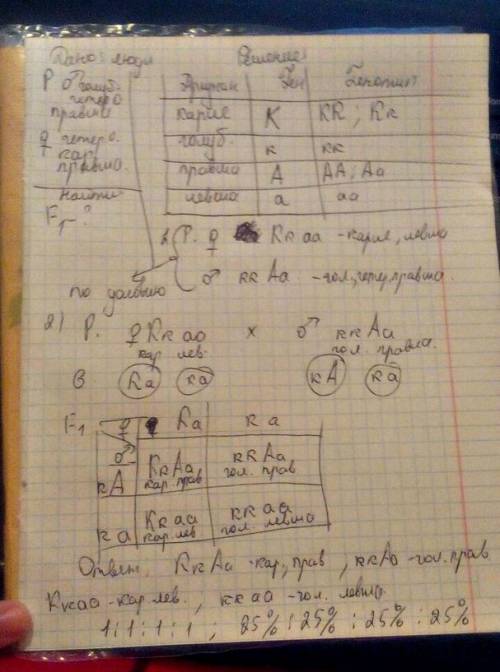 Дано: люди
Решение:
P ♂ голуб.
гетеро
правша
♀ гетеро.
кар.
правша.
Найти
F₁ - ?
Признак Ген Генотип
карие K KK ; Kк
голуб. к кк
правша A AA ; Aa
левша a aa
1. P. ♀ Kк aa - карие, левша
по условию ♂ кк Aa - гол., гетер. правша.
2) P. ♀ Kк aa x ♂ кк Aa
кар. лев. гол. правша.
G Ka кa кA кa
F₁ ♀ Ka кa
♂
кA KкAa ккAa
кар. прав гол. прав
кa Kкaa ккaa
кар. лев гол. левша
Ответ. KкAa - кар., прав , ккAa - гол. прав
Kкaa - кар. лев. , ккaa - гол. левша.
1:1:1:1 ; 25% : 25% : 25% : 25%